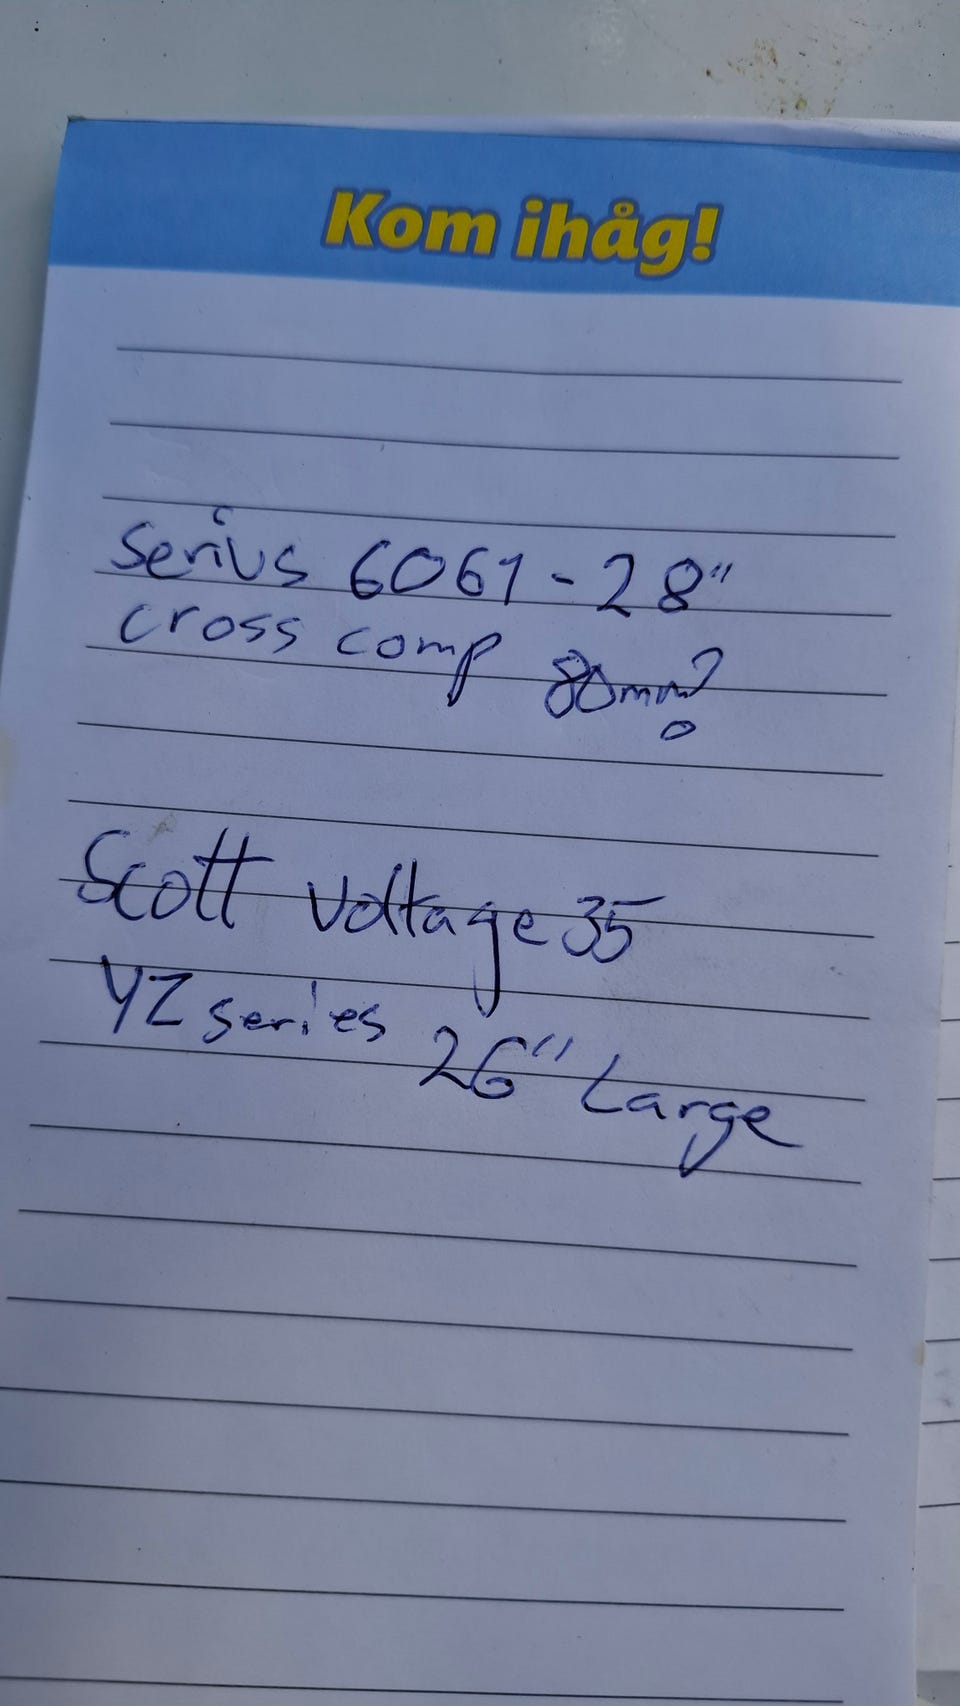 Kom ihåg!
Serius 6061 - 28"
cross comp 80mm?
Scott Voltage 35
YZ series 26" Large